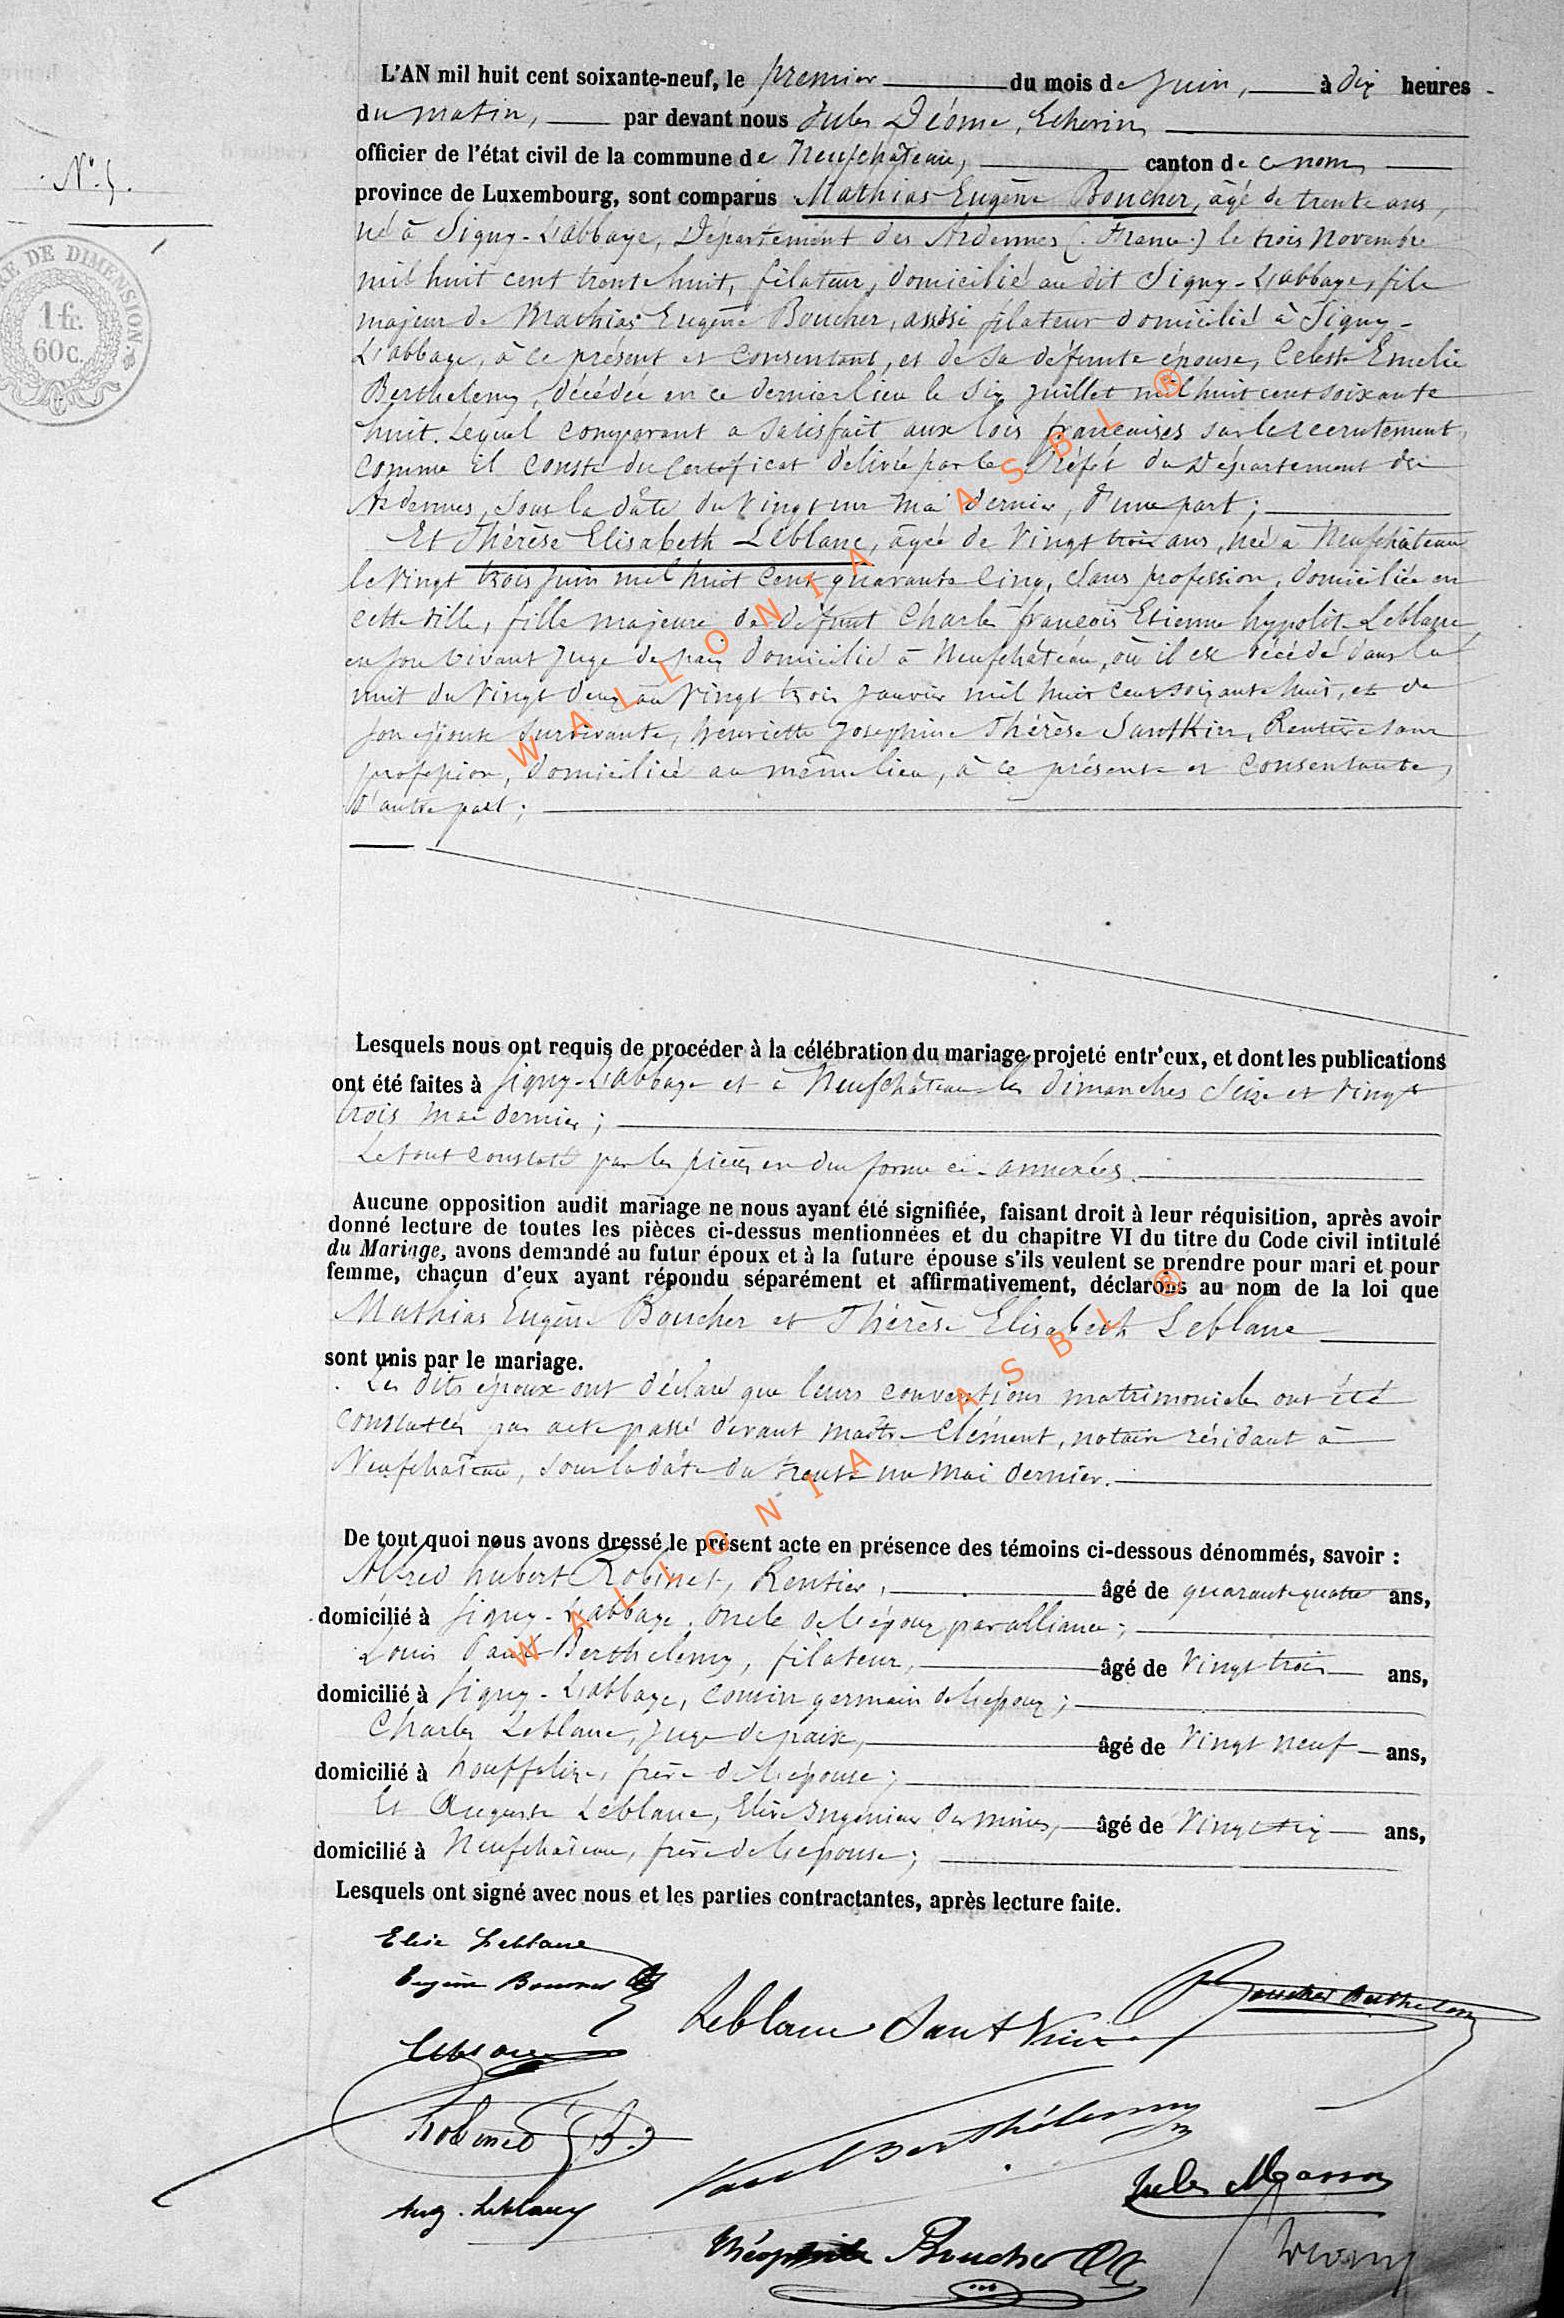 L'AN mil huit cent soixante-neuf, le premier du mois de Juin, à dix heures
du matin, par devant nous Jules Déome, Echevin,
officier de l'état civil de la commune de Neufchâteau, canton de ce nom,
province de Luxembourg, sont comparus Mathias Eugène Boucher, âgé de trente ans,
N° 5.
né à Signy-L'abbaye, Département des Ardennes (France) le trois Novembre
RE DE DIMENSION
1 fr.
60 c.
mil huit cent trente huit, filateur, domicilié au dit Signy-L'abbaye, fils
majeur de Mathias Eugène Boucher, aussi filateur domicilié à Signy-
L'abbaye, à ce présent et consentant, et de sa défunte épouse, Celeste Emelie
Berthelemy, décédée en ce dernier lieu le six Juillet mil huit cent soixante
huit. Lequel comparant a satisfait aux lois françaises sur le recrutement,
comme il conste du certificat délivré par le Préfet du Département des
Ardennes, sous la date du vingt un mai dernier, d'une part;
Et Thérèse Elisabeth Leblanc, âgée de vingt trois ans, née à Neufchâteau
le vingt trois Juin mil huit cent quarante cinq, sans profession, domiciliée en
cette ville, fille majeure de défunt Charles françois Etienne hypolit Leblanc,
en son vivant Juge de paix domicilié à Neufchâteau, où il est décédé dans la
nuit du vingt deux au vingt trois Janvier mil huit cent soixante huit, et de
son épouse survivante, henriette Josephine Thérèse Santkin, Rentière sans
profession, domiciliée au même lieu, à ce présente et consentante,
d'autre part;
WALLONIA ASBL ®
Lesquels nous ont requis de procéder à la célébration du mariage projeté entr'eux, et dont les publications
ont été faites à Signy-L'abbaye et à Neufchâteau les dimanches seize et vingt
trois mai dernier;
Le tout constaté par les pièces en due forme ci-annexées.
Aucune opposition audit mariage ne nous ayant été signifiée, faisant droit à leur réquisition, après avoir
donné lecture de toutes les pièces ci-dessus mentionnées et du chapitre VI du titre du Code civil intitulé
du Mariage, avons demandé au futur époux et à la future épouse s'ils veulent se prendre pour mari et pour
femme, chacun d'eux ayant répondu séparément et affirmativement, déclarons au nom de la loi que
Mathias Eugène Boucher et Thérèse Elisabeth Leblanc
sont unis par le mariage.
Les dits époux ont déclaré que leurs conventions matrimoniales ont été
constatées par acte passé devant maître Clément, notaire résidant à
Neufchâteau, sous la date du trente un mai dernier.
WALLONIA ASBL ®
De tout quoi nous avons dressé le présent acte en présence des témoins ci-dessous dénommés, savoir :
Alfred hubert Robinet, Rentier, âgé de quarante quatre ans,
domicilié à Signy-L'abbaye, oncle de l'époux par alliance;
Louis Paul Berthelemy, filateur, âgé de vingt trois ans,
domicilié à Signy-L'abbaye, cousin germain de l'époux;
Charles Leblanc, Juge de paix, âgé de vingt neuf ans,
domicilié à houffalize, frère de l'épouse;
Et Auguste Leblanc, Elève Ingénieur des mines, âgé de vingt six ans,
domicilié à Neufchâteau, frère de l'épouse;
Lesquels ont signé avec nous et les parties contractantes, après lecture faite.
Elise Leblanc
Eugène Boucher
Leblanc Santkin
Boucher Berthelemy
Leblanc
Robinet
Paul Berthélemy
Jules Masson
Aug. Leblanc
Théophile Boucher